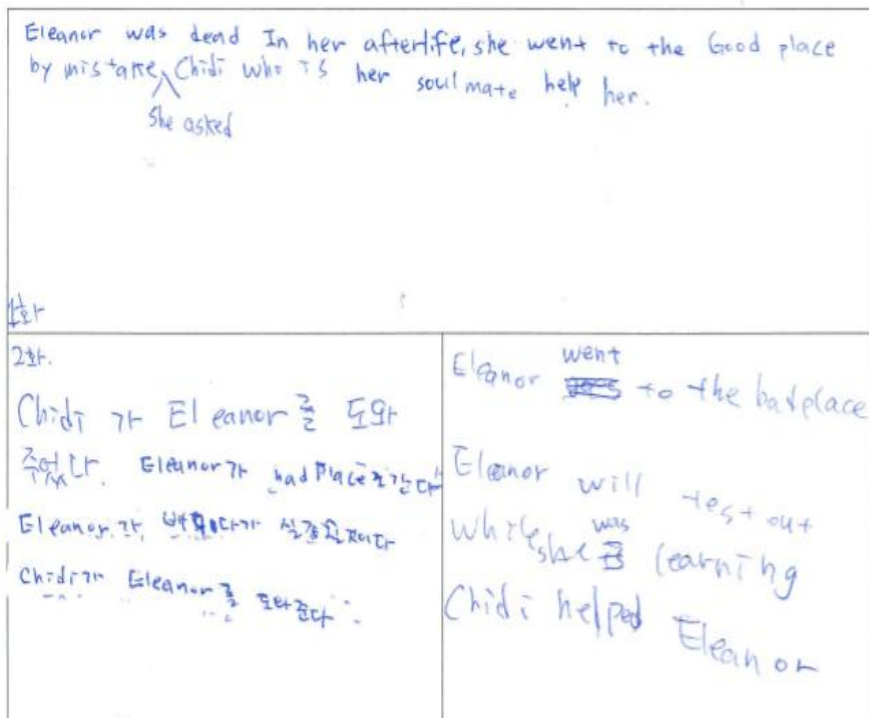 Eleanor was dead In her afterlife, she went to the Good place
by mistake, Chidi who is her soulmate help her.
She asked
1화
2화.
Chidi 가 Eleanor를 도와
주었다. Eleanor가 bad place로 간다
Eleanor가
Chidi가 Eleanor를 도와준다
Eleanor went to the badplace
Eleanor will test out
while she was learning
Chidi helped Eleanor